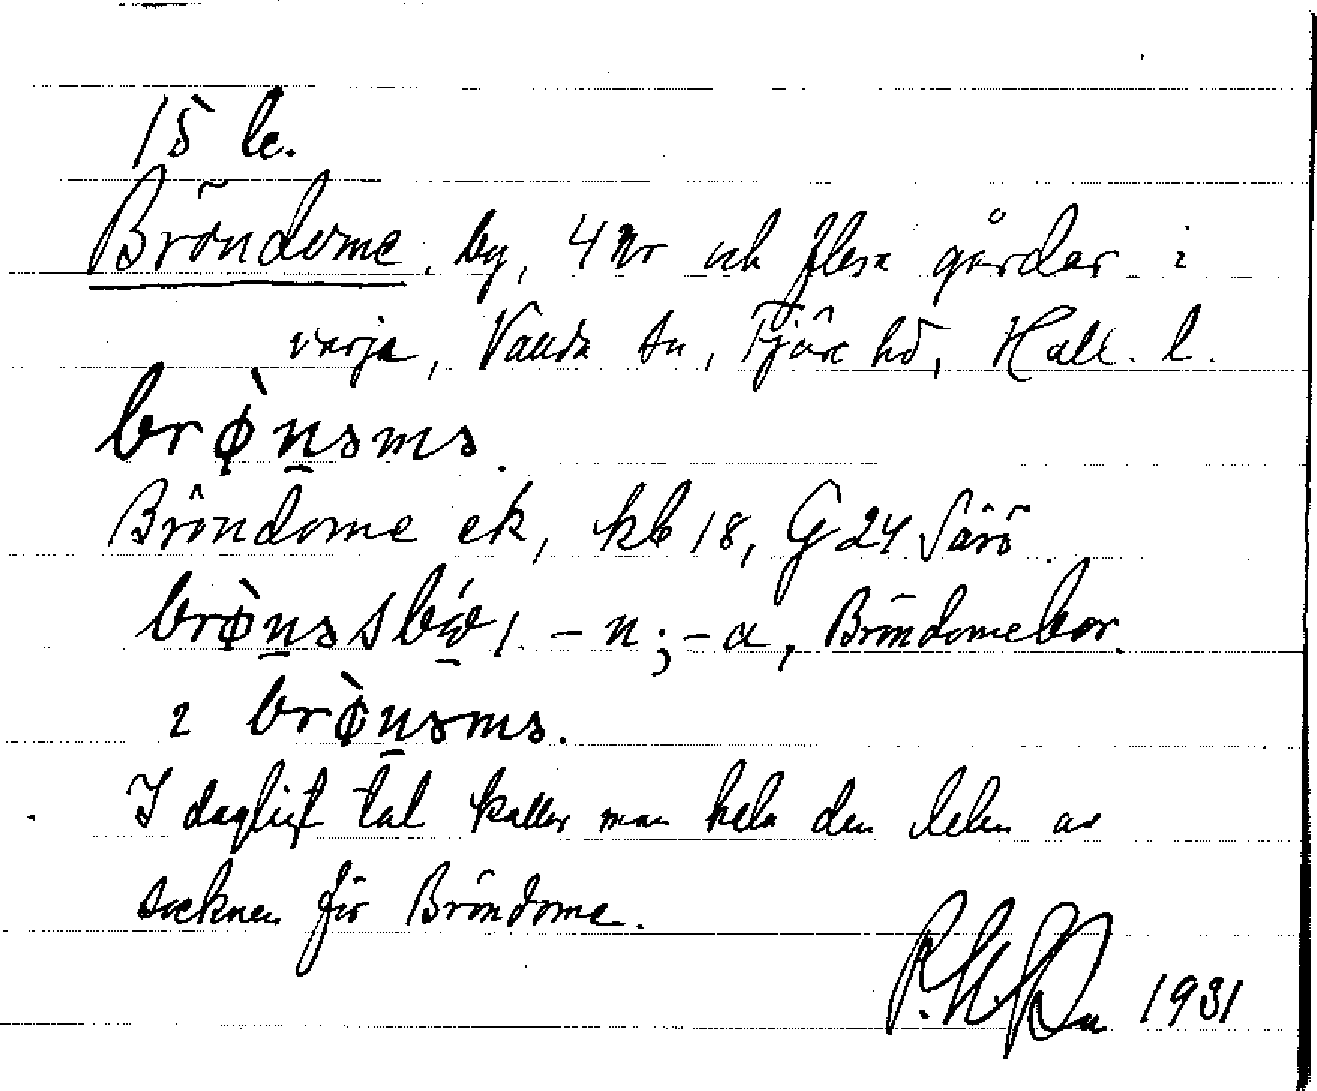 15 le.
Bröndome, by, 4 nr och flera gårdar i
varje, Vallda sn, Fjäre hd, Hall. l.
brø̀nəmə.
Bröndome ek, kb 18, G 24 Särö
-n; -a, Bröndomebor.
i brø̀nəmə.
I dagligt tal kallar man hela den delen av
socknen för Bröndome.
1931